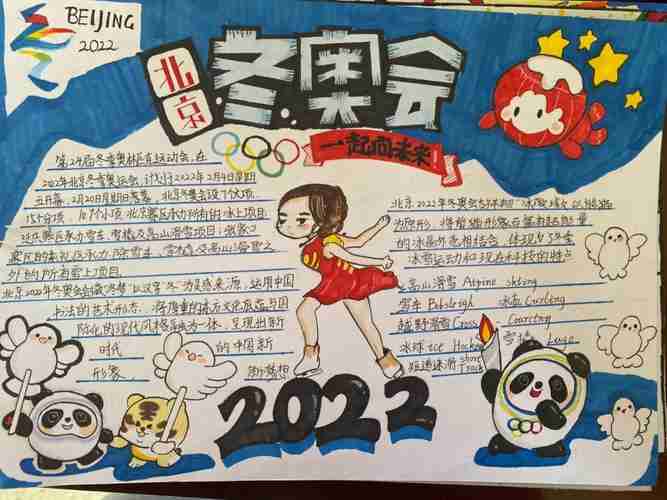 BEIJING
2022
北京
冬奥会
一起向未来!
第24届冬季奥林匹克运动会,在
2022年北京冬奥运会,计划将2022年2月4日星期
五开幕,2月20日星期日闭幕,北京冬奥会设7个大项,
15个分项,109个小项,北京赛区承办所有的冰上项目
延庆赛区承办雪车、雪橇及高山滑雪项目;张家口
赛区的崇礼区承办除雪车、雪橇及高山滑雪之
外的所有雪上项目
北京2022年冬奥会会徽"冬梦"以汉字"冬"为灵感来源,运用中国
书法的艺术形态,将厚重的东方文化底蕴与国
际化的现代风格融为一体,呈现出新
时代 的中国新
形象、 新梦想
北京2022年冬奥会吉祥物"冰墩墩"以熊猫
为原形,将熊猫形象与富有超能量
的冰晶外壳相结合,体现了冬季
冰雪运动和现在科技的特点
高山滑雪 Alpine skting
雪车 Bobsleigh 冰壶 Curling
越野滑雪 Cross Country
冰球 Ice Hockey 雪橇 Luge
短道速滑 short Track
2022